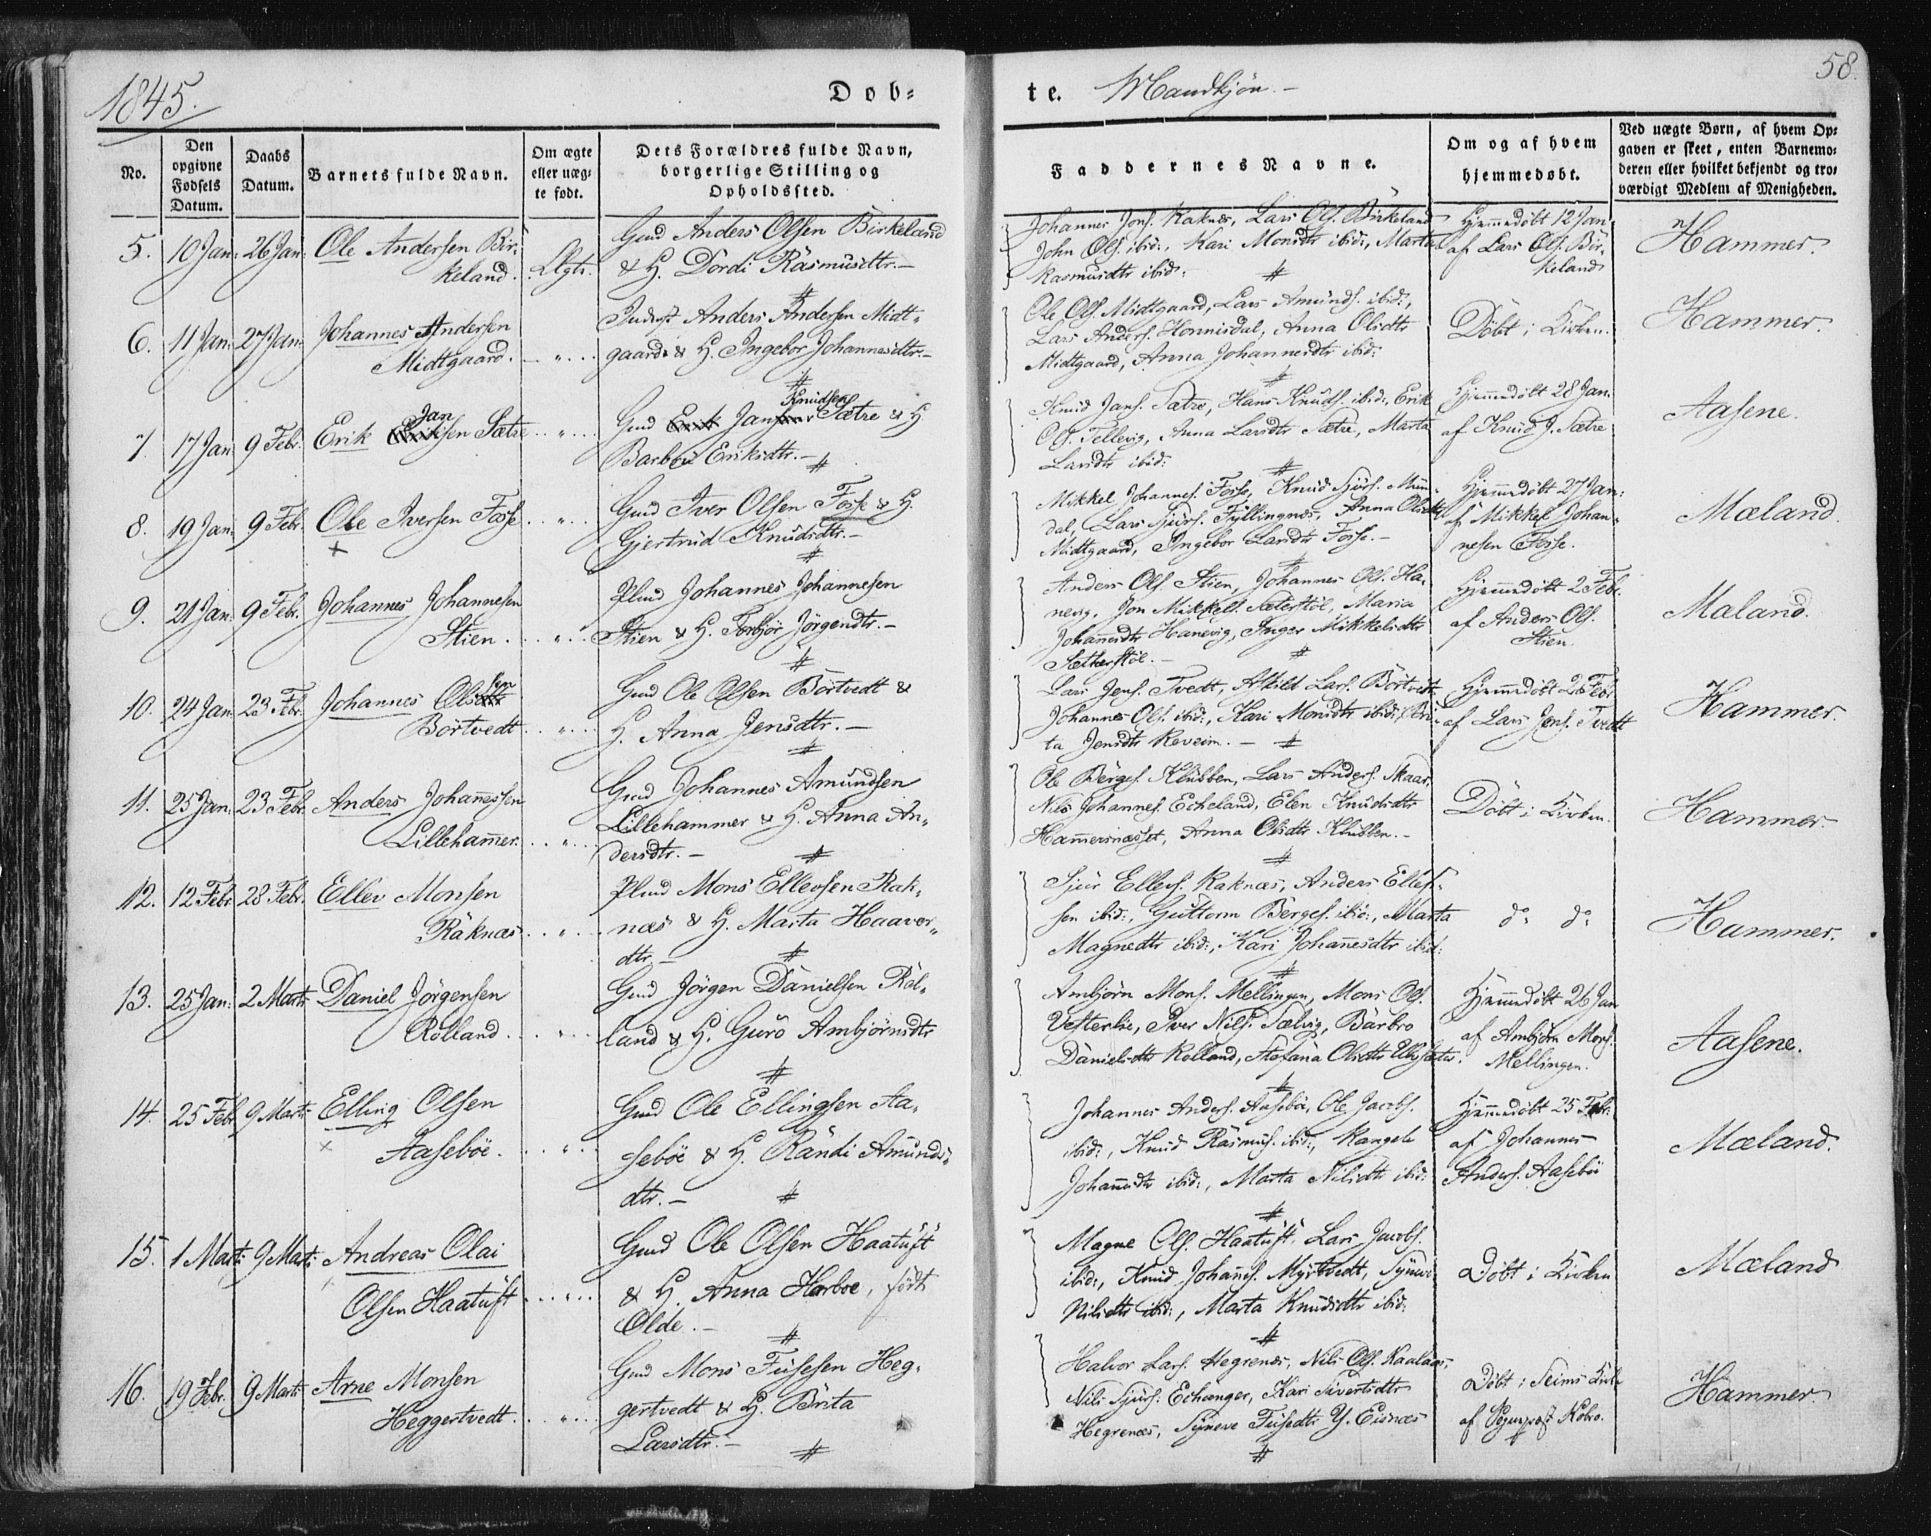 1845.
Dob-
te. Mandkjøn.-
58.
No.
Den opgivne Fødsels Datum.
Daabs Datum.
Barnets fulde Navn.
Om ægte eller uægte født.
Dets Forældres fulde Navn, borgerlige Stilling og Opholdssted.
Faddernes Navne.
Om og af hvem hjemmedøbt.
Ved uægte Børn, af hvem Opgaven er skeet, enten Barnemoderen eller hvilket bekjendt og troværdigt Medlem af Menigheden.
5. 10 Jan: 26 Jan: Ole Andersen Bir-
keland. Ægte.
Gmd Anders Olsen Birkeland
& H. Dordi Rasmusdtr.-
Johannes Jons. Raknes, Lars Ols. Birkeland
John Ols. ibid:, Kari Monsdtr ibid:, Marta
Rasmusdtr ibid:
Hjemmedøbt 12 Jan:
af Lars Ols. Bir-
keland
Hammer.
6. 11 Jan: 27 Jan: Johannes Andersen
Midtgaard. - " -
Anders Andersen Midt-
gaard & H. Ingebor Johannesdtr.-
Ole Ols. Midtgaard, Lars Amunds. ibid:,
Lars Anders. Honnisdal, Anna Olsdtr
Midtgaard, Anna Johannesdtr ibid:
Døbt i Kirken.
Hammer.
7. 17 Jan 9 Febr. Erik Jansen Sætre " 
Gmd Jan Knudsen Sætre & H
Barbra Eriksdtr.-
Knud Jans. Sætre, Hans Knuds. ibid:, Erik
Ols. Tellevig, Anna Larsdtr Sætre, Marta
Larsdtr ibid:
Hjemmedøbt 28 Jan.
af Knud J. Sætre
Aasene.
8. 19 Jan: 9 Febr. Ole Iversen Fosse "
Gmd Iver Olsen Fosse & H.
Gjertrud Knudsdtr.-
Mikkel Johannes. Fosse, Knud Sjurs. Mun-
dal, Lars Sjurs. Fyllingnes, Anna Olsdtr
Midtgaard, Ingebor Larsdtr Fosse.-
Hjemmedøbt 27 Jan:
af Mikkel Johan-
nesen Fosse.
Mæland.
9. 21 Jan: 9 Febr. Johannes Johannesen
Stien. "
Plmd Johannes Johannesen
Stien & H. Torbjør Jørgendtr.-
Anders Ols. Stien, Johannes Ols. Ha-
nevig, Jon Mikkels. Sæterstøl, Maria
Johannesdtr Hanevig, Inger Mikkelsdtr
Sætherstøl.-
Hjemmedøbt 2 Febr.
af Anders Ols.
Stien.
Mæland.
10. 24 Jan 23 Febr. Johannes Olsen
Børtvedt "
Gmd Ole Olsen Børtvedt &
H. Anna Jensdtr.-
Lars Jens. Tvedt, Askild Lars. Børtvedt
Johannes Ols. ibid:, Kari Monsdtr ibid:, Bri-
ta Jensdtr Reveim.-
Hjemmedøbt 2 Febr.
af Lars Jens. Tvedt
Hammer.
11. 25 Jan: 23 Febr. Anders Johannessen
Lillehammer. "
Gmd Johannes Amundsen
Lillehammer & H. Anna An-
dersdtr.-
Ole Børges. Klubben, Lars Anders. Skaar,
Nils Johannes. Echeland, Elen Knudsdtr
Hammersnæsset, Anna Olsdtr Klubben.-
Døbt i Kirken.
Hammer.
12. 12 Febr 28 Febr. Ellev Monsen
Raknæs "
Plmd Mons Ellevsen Rak-
næs & H. Marta Haavor-
dtr.-
Sjur Ellevs. Raknæs, Anders Ellef-
sen ibid:, Guttorm Børges. ibid:, Marta
Magnedtr ibid:, Kari Johannesdtr ibid:
do: do:
Hammer.
13. 25 Jan: 2 Marts Daniel Jørgensen
Rølland. "
Gmd Jørgen Danielsen Røl-
land & H. Guro Ambjørnsdtr
Ambjørn Mons. Mellingen, Mons Ols.
Vesterlie, Iver Nils. Sælvig, Barbro
Danielsdtr Rolland, Stefana Olsdtr
Hjemmedøbt 26 Jan
af Ambjørn Mons.
Mellingen.
Aasene.
14. 25 Febr 9 Marts Elling Olsen
Aasebøe. "
Gmd Ole Ellingsen Aa-
sebøe & H. Randi Amunds-
dtr.-
Johannes Anders. Aasebøe, Ole Jacobs.
ibid:, Knud Rasmus. ibid:, Rangele
Johannesdtr ibid:, Marta Nilsdtr ibid:
Hjemmedøbt 25 Febr:
af Johannes
Anders. Aasebøe
Mæland.
15. 1 Marts 9 Marts Andreas Olai
Olsen Haatuft "
Gmd Ole Olsen Haatuft
& H. Anna Harboe, født
Olde.-
Magne Ols. Haatuft Lars Jacobs.
ibid:, Knud Johannes. Myrtvedt, Synevi
Nilsdtr ibid:, Marta Knudsdtr ibid:
Døbt i Kirken
Mæland
16. 19 Febr. 9 Marts Arne Monsen
Heggertvedt. "
Gmd Mons Fusesen Heg-
gertvedt & H. Brita
Larsdtr.-
Halvor Lars. Hegrenæs, Nils Ols. Kaalaas,
Nils Sjurs. Echanger, Kari Sivertsdtr
Hegrenæs, Syneve Fusedtr Y. Eisnæs
Døbt i Seims Kirke
af Sognepræst Kobro.
Hammer.